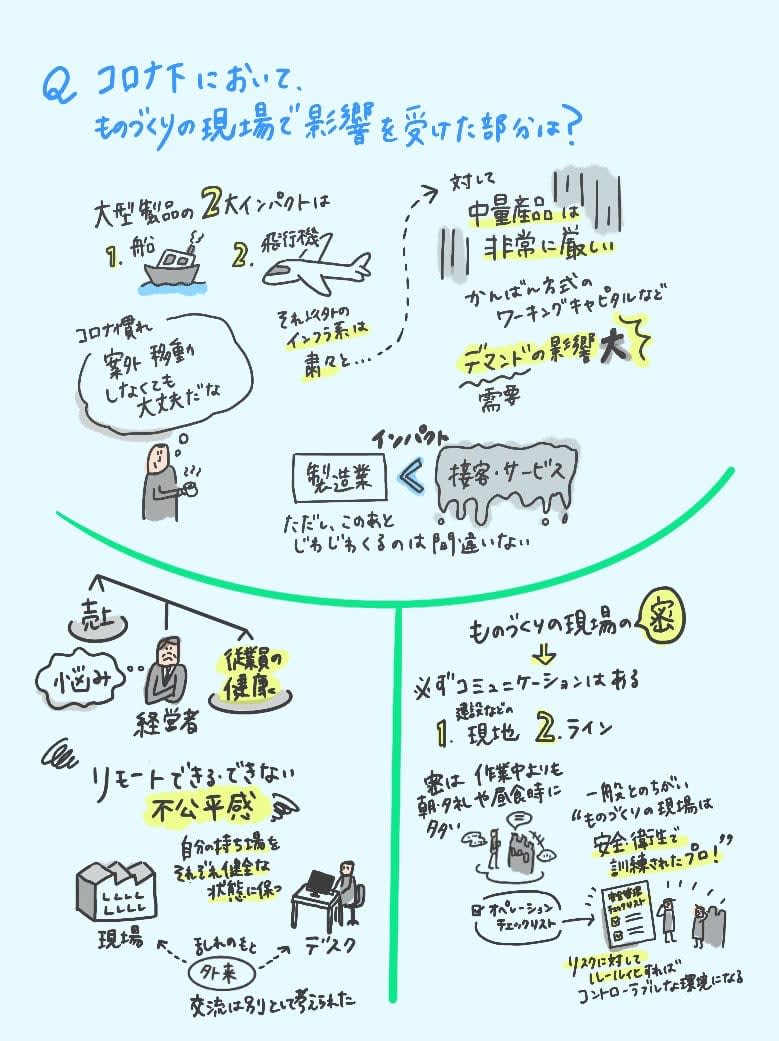 Q コロナ下において、
ものづくりの現場で影響を受けた部分は?
大型製品の2大インパクトは
1. 船
2. 飛行機
それ以外の
インフラ系は
粛々と…
対して
中量産品は
非常に厳しい
かんばん方式の
ワーキングキャピタルなど
デマンドの影響大
需要
コロナ慣れ
案外移動
しなくても
大丈夫だな
インパクト
製造業 < 接客・サービス
ただし、このあと
じわじわくるのは間違いない
売上
悩み
経営者
従業員の
健康
リモートできる・できない
不公平感
自分の持ち場を
それぞれ健全な
状態に保つ
現場
デスク
乱れのもと
外来
交流は別として考えられた
ものづくりの現場の密
※必ずコミュニケーションはある
1. 建設などの
現地
2. ライン
密は作業中よりも
朝・夕礼や昼食時に
多い
一般とのちがい
“ものづくりの現場は
安全・衛生で
訓練されたプロ!”
オペレーション
チェックリスト
安全管理
チェックリスト
リスクに対して
ルール化すれば
コントローラブルな環境になる